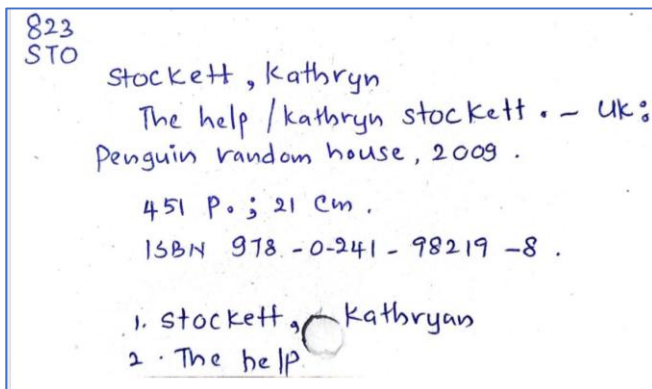 823
STO
Stockett, Kathryn
The help / kathryn stockett. - UK:
Penguin random house, 2009.
451 P.; 21 cm.
ISBN 978-0-241-98219-8.
1. stockett, Kathryan
2. The help